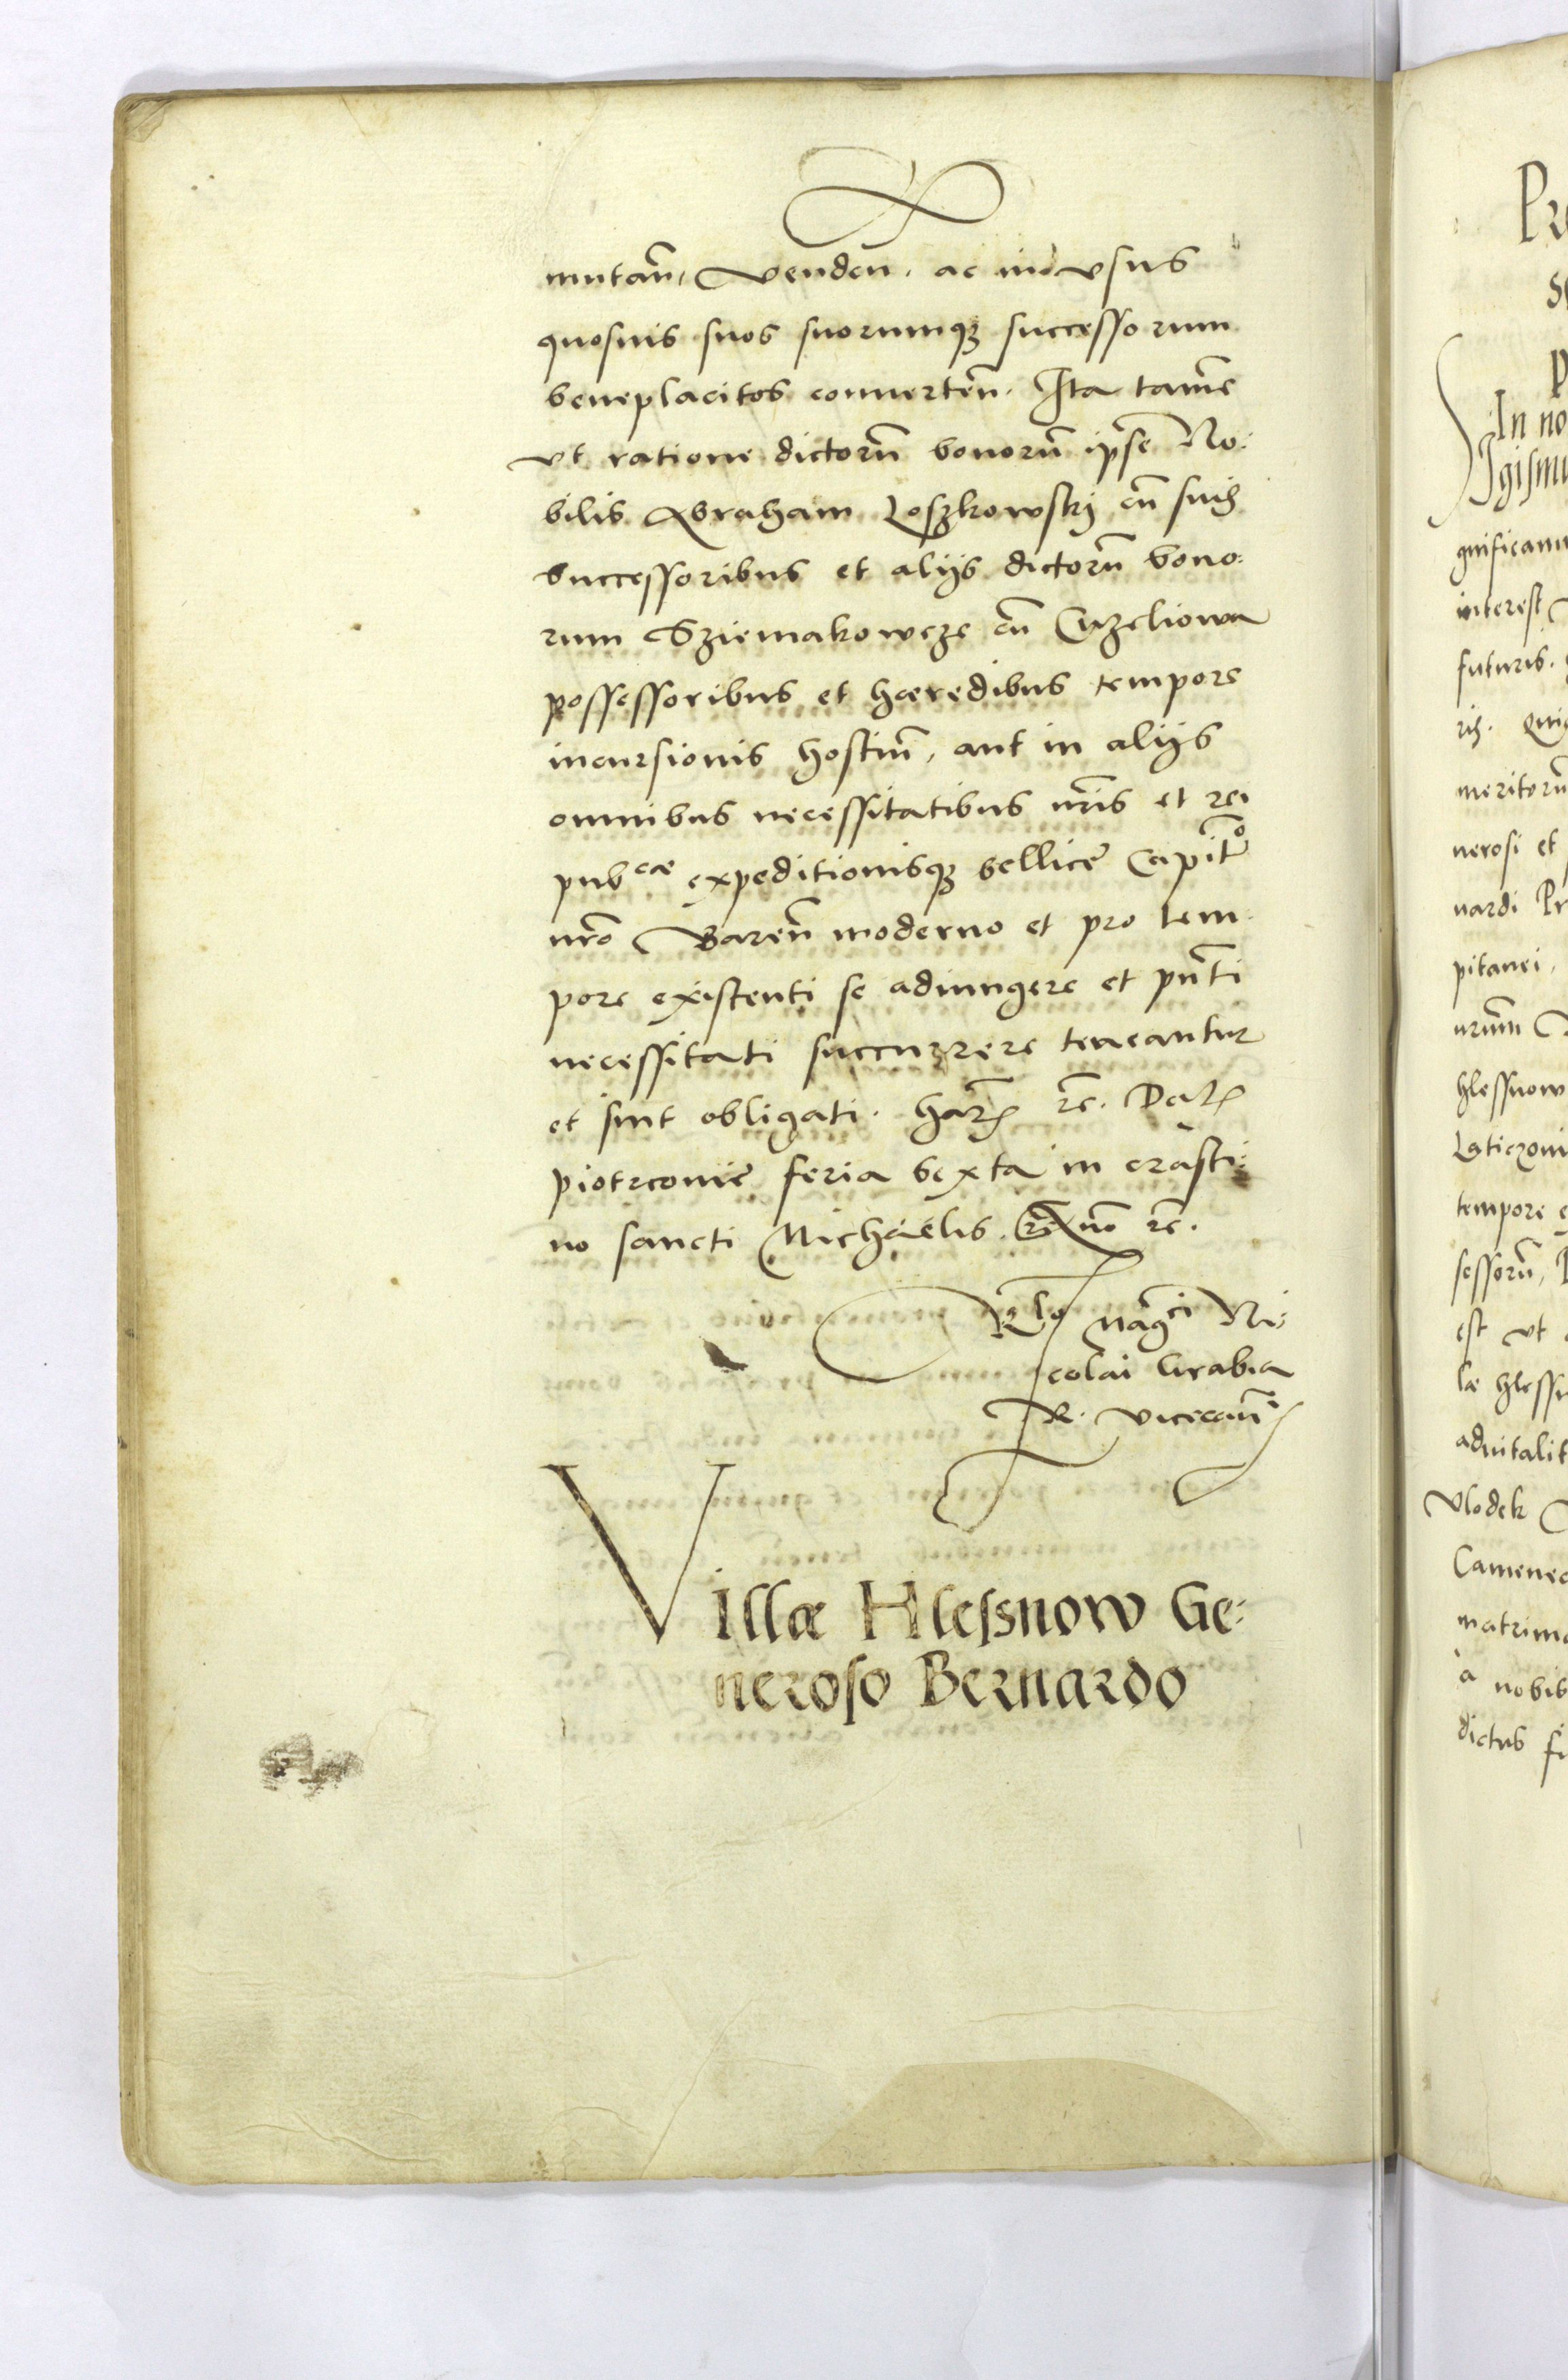 mutan̄, venden. ac in vsus
quosuis suos suorumqꝫ successorum
beneplacitos conuerten̄. Ita tamē
vt ratione dictorū bonorū ipse No:
bilis Abraham Loszkowskÿ cū suis
Successoribus et alÿs dictorū bono:
rum Sziemakowcze cū Cuzeliowa
possessoribus et hæredibus tempore
incursionis hostiū, aut in alÿs
omnibus necessitatibus nr̄is et rei
pubᶜᵃᵉ expeditionisqꝫ bellicę Capit̄o
nr̄o Baren̄ moderno et pro tem:
pore existenti se adiungere et pn̄ti
necessitati succurrere teneantur
et sint obligati. har̄ꝫ rc̄. Datꝫ
piotrconię feria sexta in crasti:
no sancti Michaëlis. Anno rc̄.
Rlo maḡᶜⁱ Ni:
colai Grabia
R. vicecan̄
Villæ Hlessnow Ge:
neroso Bernardo
Pr
In no
gismu
gnificamu
interest
futuris.
ris. Quig
meritorū
nerosi et
nardi Pr
pitanei,
urum
hlessnow
Laticzoui
tempore
sessorū,
est vt
læ hless
aduitalit
Vlodek
Camenec
matrimo
à nobis
dictus fi